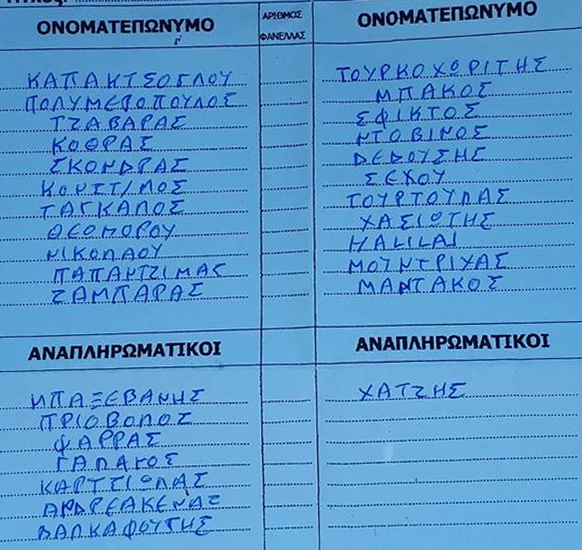 ΟΝΟΜΑΤΕΠΩΝΥΜΟ
ΑΡΙΘΜΟΣ
ΦΑΝΕΛΛΑΣ
ΟΝΟΜΑΤΕΠΩΝΥΜΟ
ΚΑΠΑΚΤΣΟΓΛΟΥ
ΠΟΛΥΜΕΡΟΠΟΥΛΟΣ
ΤΖΑΒΑΡΑΣ
ΚΟΘΡΑΣ
ΣΚΟΝΔΡΑΣ
ΤΑΓΚΑΛΟΣ
ΘΕΟΔΩΡΟΥ
ΝΙΚΟΛΑΟΥ
ΠΑΠΑΝΤΖΙΜΑΣ
ΖΑΜΠΑΡΑΣ
ΤΟΥΡΚΟΧΩΡΙΤΗΣ
ΜΠΑΚΟΣ
ΣΦΙΚΤΟΣ
ΝΤΟΒΙΝΟΣ
ΔΕΔΟΥΣΗΣ
ΣΕΧΟΥ
ΤΟΥΡΤΟΥΛΑΣ
ΧΑΣΙΩΤΗΣ
HALILAI
ΜΟΥΝΤΡΙΧΑΣ
ΜΑΝΤΑΚΟΣ
ΑΝΑΠΛΗΡΩΜΑΤΙΚΟΙ
ΑΝΑΠΛΗΡΩΜΑΤΙΚΟΙ
ΜΠΑΞΕΒΑΝΗΣ
ΠΡΙΟΒΟΛΟΣ
ΨΑΡΡΑΣ
ΓΑΛΑΓΟΣ
ΚΑΡΤΣΙΩΛΑΣ
ΑΝΔΡΕΑΚΕΝΑΣ
ΒΑΛΚΑΦΟΥΤΗΣ
ΧΑΤΖΗΣ